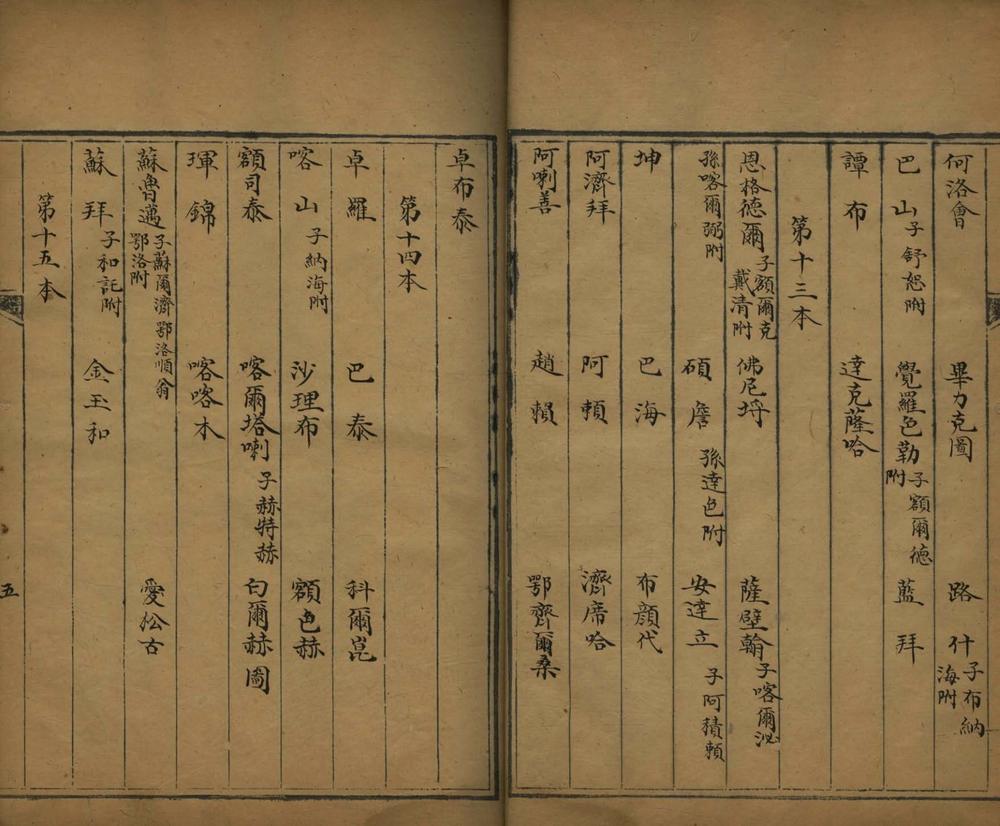 何洛會 畢力克圖 路什子布納海附
巴山子舒恕附 覺羅色勒子額爾德附 藍拜
譚布 達克薩哈
第十三本
恩格德爾子額爾克戴清附 佛尼埒 薩壁翰子喀爾泌
孫喀爾弼附 碩詹孫達色附 安達立子阿積賴
坤 巴海 布顏代
阿濟拜 阿賴 濟席哈
阿喇善 趙賴 鄂齊爾桑
卓布泰
第十四本
卓羅 巴泰 科爾崑
喀山子納海附 沙理布 額色赫
額司泰 喀爾塔喇子赫特赫 白爾赫圖
琿錦 喀喀木
蘇魯邁子蘇爾濟鄂洛順翁鄂洛附 愛松古
蘇拜子和託附 金玉和
第十五本
五